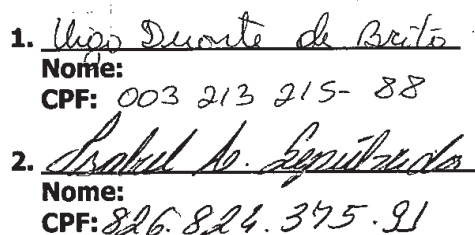 1. Hugo Duarte de Brito
Nome:
CPF: 003 213 215-88
2. Isabel A. Sepúlveda
Nome:
CPF: 826.824.375.91